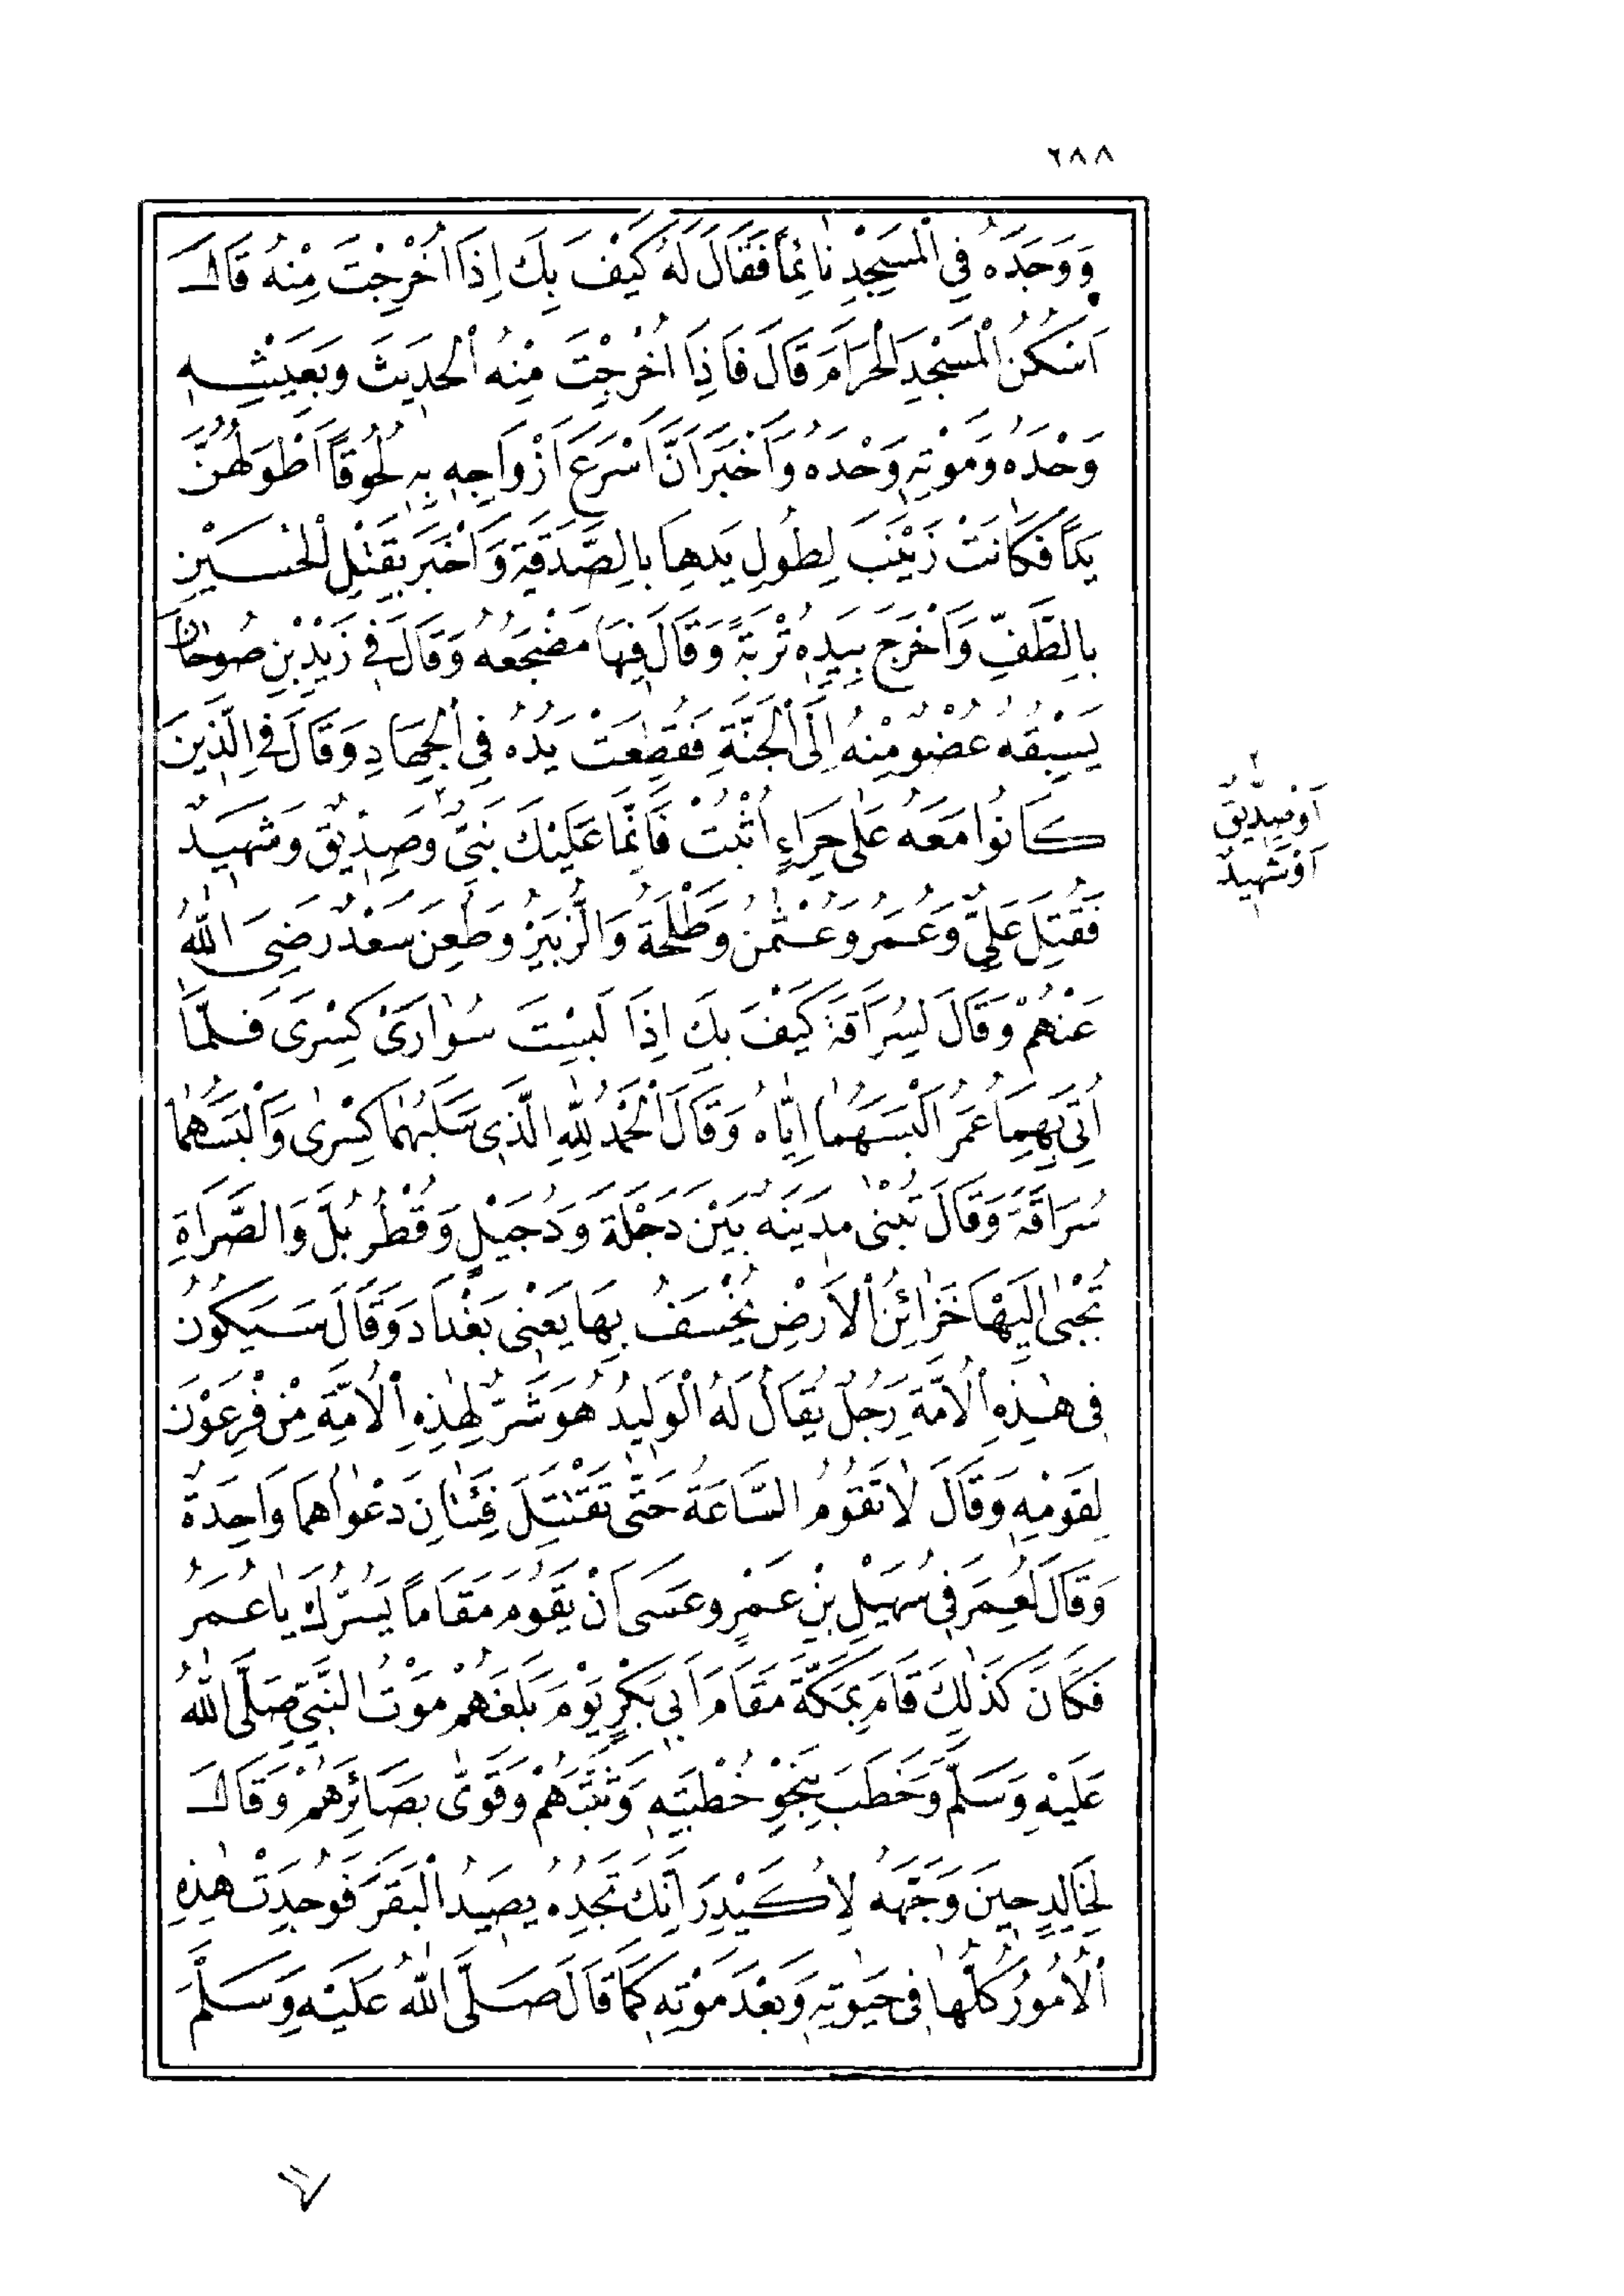 ٢٨٨
وَوَجَدَهُ فِي الْمَسْجِدِ نَائِمًا فَقَالَ لَهُ كَيْفَ بِكَ اِذَا اُخْرِجْتَ مِنْهُ قَالَ
اَسْكُنُ الْمَسْجِدَ الْحَرَامَ قَالَ فَاِذَا اُخْرِجْتَ مِنْهُ الْحَدِيثَ وَبِعَيْشِهِ
وَحْدَهُ وَمَوْتِهِ وَحْدَهُ وَاَخْبَرَ اَنَّ اَسْرَعَ اَزْوَاجِهِ بِهِ لُحُوقًا اَطْوَلُهُنَّ
يَدًا فَكَانَتْ زَيْنَبَ لِطُولِ يَدِهَا بِالصَّدَقَةِ وَاَخْبَرَ بِقَتْلِ الْحُسَيْنِ
بِالطَّفِّ وَاَخْرَجَ بِيَدِهِ تُرْبَةً وَقَالَ فِيهَا مَضْجَعُهُ وَقَالَ فِي زَيْدِ بْنِ صُوحَانَ
يَسْبِقُهُ عُضْوٌ مِنْهُ اِلَى الْجَنَّةِ فَقُطِعَتْ يَدُهُ فِي الْجِهَادِ وَقَالَ فِي الَّذِينَ
كَانُوا مَعَهُ عَلٰى حِرَاءٍ اُثْبُتْ فَاِنَّمَا عَلَيْكَ نَبِيٌّ وَصِدِّيقٌ وَشَهِيدٌ
٢
اَوْ صِدِّيقٌ
اَوْ شَهِيدٌ
فَقُتِلَ عَلِيٌّ وَعُمَرُ وَعُثْمٰنُ وَطَلْحَةُ وَالزُّبَيْرُ وَطُعِنَ سَعْدٌ رَضِيَ اللّٰهُ
عَنْهُمْ وَقَالَ لِسُرَاقَةَ كَيْفَ بِكَ اِذَا لَبِسْتَ سُوَارَىْ كِسْرَى فَلَمَّا
اُتِىَ بِهِمَا عُمَرُ اَلْبَسَهُمَا اِيَّاهُ وَقَالَ الْحَمْدُ لِلّٰهِ الَّذِى سَلَبَهُمَا كِسْرٰى وَاَلْبَسَهُمَا
سُرَاقَةَ وَقَالَ تُبْنٰى مَدِينَةٌ بَيْنَ دَجْلَةَ وَدُجَيْلٍ وَقُطْرُبُلَّ وَالصَّرَاةِ
تُجْبٰى اِلَيْهَا خَزَائِنُ الْاَرْضِ يُخْسَفُ بِهَا يَعْنِى بَغْدَادَ وَقَالَ سَيَكُونُ
فِى هٰذِهِ الْاُمَّةِ رَجُلٌ يُقَالُ لَهُ الْوَلِيدُ هُوَ شَرٌّ لِهٰذِهِ الْاُمَّةِ مِنْ فِرْعَوْنَ
لِقَوْمِهِ وَقَالَ لَا تَقُومُ السَّاعَةُ حَتَّى تَقْتَتِلَ فِئَتَانِ دَعْوَاهُمَا وَاحِدَةٌ
وَقَالَ لِعُمَرَ فِى سُهَيْلِ بْنِ عَمْرٍو عَسَى اَنْ يَقُومَ مَقَامًا يَسُرُّكَ يَا عُمَرُ
فَكَانَ كَذٰلِكَ قَامَ بِمَكَّةَ مَقَامَ اَبِى بَكْرٍ يَوْمَ بَلَغَهُمْ مَوْتُ النَّبِيِّ صَلَّى اللّٰهُ
عَلَيْهِ وَسَلَّمَ وَخَطَبَ بِنَحْوِ خُطْبَتِهِ وَثَبَّتَهُمْ وَقَوّٰى بَصَائِرَهُمْ وَقَالَ
لِخَالِدٍ حِينَ وَجَّهَهُ لِاُكَيْدِرَ اِنَّكَ تَجِدُهُ يَصِيدُ الْبَقَرَ فَوُجِدَتْ هٰذِهِ
الْاُمُورُ كُلُّهَا فِى حَيٰوتِهِ وَبَعْدَ مَوْتِهِ كَمَا قَالَ صَلَّى اللّٰهُ عَلَيْهِ وَسَلَّمَ